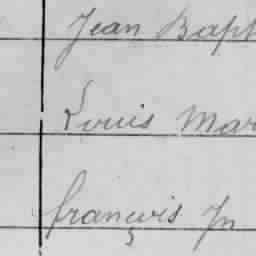 Jean Bapt
Louis Mar
françois Jn